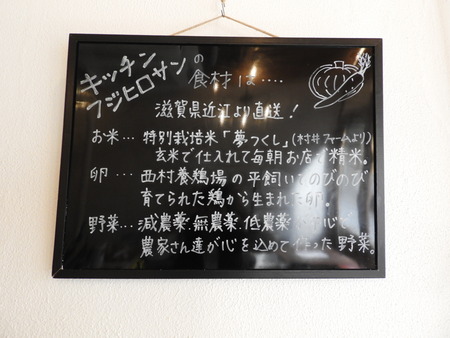 キッチン
フジヒロサンの
食材は‥‥
滋賀県近江より直送！
お米… 特別栽培米「夢つくし」(村井ファームより)
玄米で仕入れて毎朝お店で精米。
卵 … 西村養鶏場の平飼いでのびのび
育てられた鶏から生まれた卵。
野菜… 減農薬・無農薬・低農薬
農家さん達が心を込めて作った野菜。